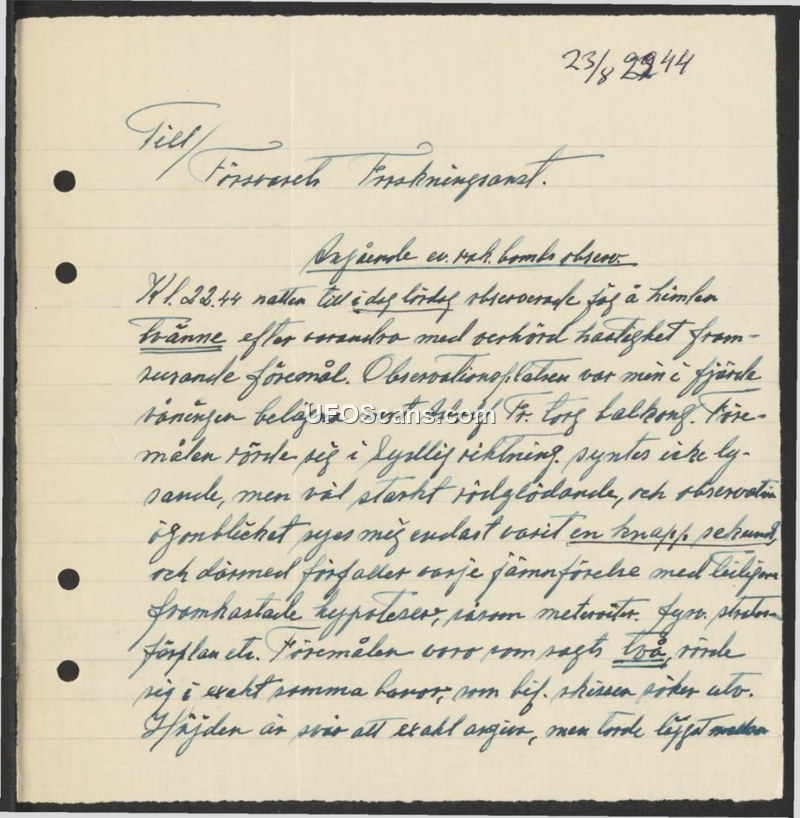 23/8 44
Till/
Försvarets Forskningsanst.
Angående ev. rak. bombs observ.
Kl. 22.44 natten till i dag lördag observerade jag å himlen
tvänne efter varandra med oerhörd hastighet fram-
susande föremål. Observationsplatsen var min i fjärde
våningen belägna Fr. torg balkong. Före-
målen rörde sig i Sydlig riktning, syntes icke ly-
sande, men väl starkt rödglödande, och observation
ögonblicket syes mig endast varit en knapp sekund,
och därmed förfaller varje jämnförelse med tidigare
framkastade hypoteser, såsom meteoriter. fyrv.
förplan etc. Föremålen voro som sagts två, rörde
sig i exakt samma banor, som bif. skissen söker utv.
Höjden är svår att exakt angiva, men torde legat mellan
UFOScans.com